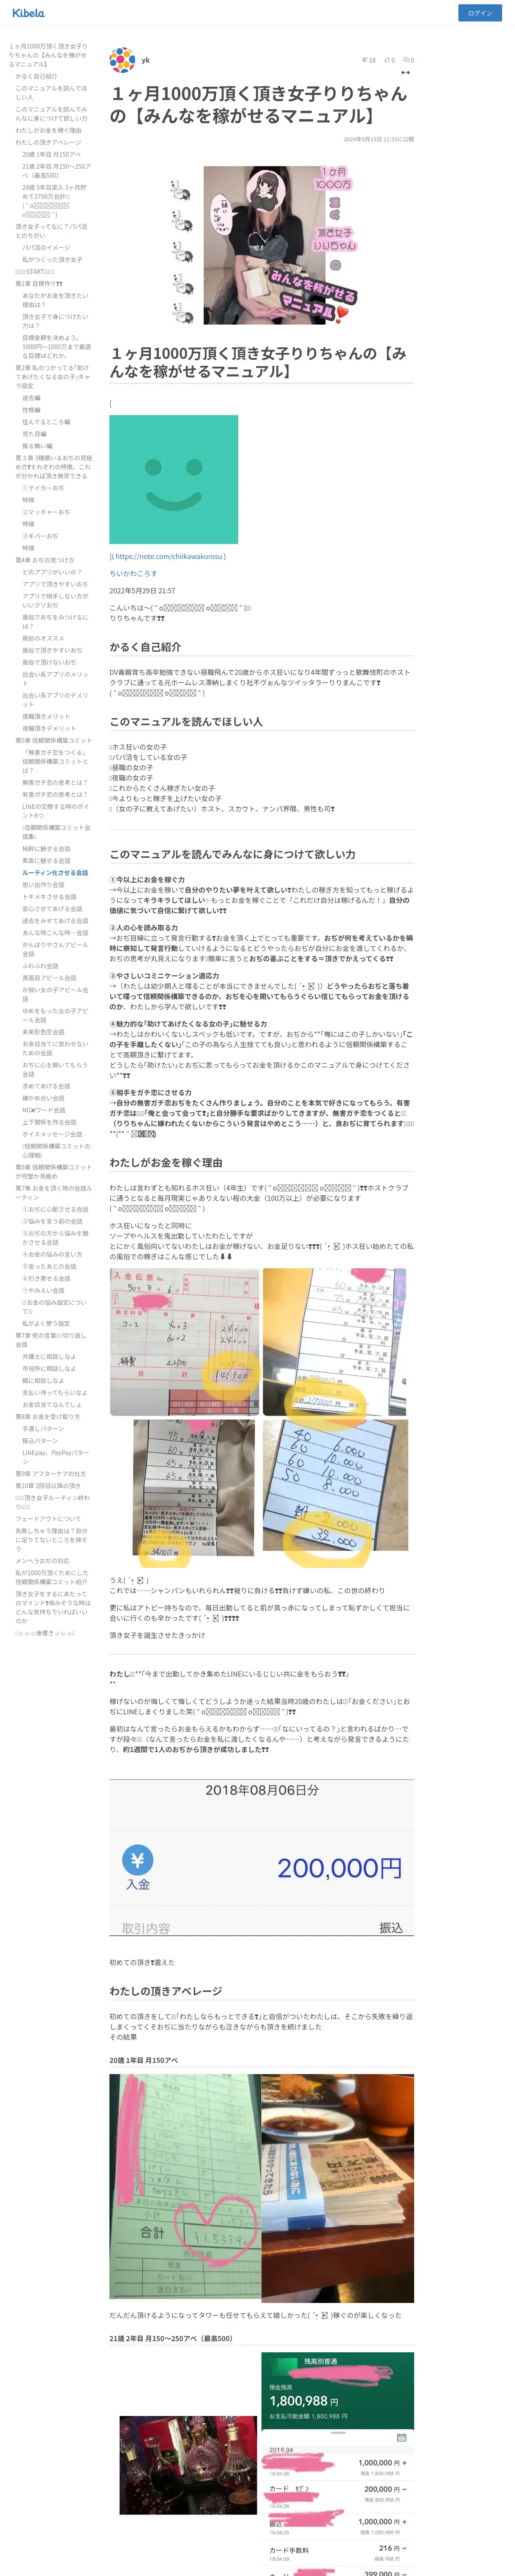 Kibela
ログイン
１ヶ月1000万頂く頂き女子り
りちゃんの【みんなを稼がせ
るマニュアル】
かるく自己紹介
このマニュアルを読んでほ
しい人
このマニュアルを読んでみ
んなに身につけて欲しい力
わたしがお金を稼ぐ理由
わたしの頂きアベレージ
20歳 1年目 月150アベ
21歳 2年目 月150〜250ア
ベ（最高500）
24歳 5年目突入 3ヶ月貯
めて2700万会計
頂き女子ってなに？パパ活
とのちがい
パパ活のイメージ
私がつくった頂き女子
START
第1章 目標作り❣❣
あなたがお金を頂きたい
理由は？
頂き女子で身につけたい
力は？
目標金額を決めよう。
1000円〜1000万まで最適
な目標はどれか。
第2章 私のつかってる｢助け
てあげたくなる女の子｣キャ
ラ設定
過去編
性格編
住んでるところ編
見た目編
振る舞い編
第３章 3種類いるおぢの見極
め方❣それぞれの特徴。これ
が分かれば頂き無双できる
①テイカーおぢ
特徴
②マッチャーおぢ
特徴
③ギバーおぢ
特徴
第4章 おぢの見つけ方
どのアプリがいいの？
アプリで頂きやすいおぢ
アプリで相手しない方が
いいクソおぢ
風俗でおぢをみつけるに
は？
風俗のオススメ
風俗で頂きやすいおぢ
風俗で頂けないおぢ
出会い系アプリのメリッ
ト
出会い系アプリのデメリ
ット
夜職頂きメリット
夜職頂きデメリット
第5章 信頼関係構築コミット
「無害ガチ恋をつくる」
信頼関係構築コミットと
は？
無害ガチ恋の思考とは？
有害ガチ恋の思考とは？
LINEの交換する時のポイ
ント8つ
信頼関係構築コミット会
話集
純粋に魅せる会話
素直に魅せる会話
ルーティン化させる会話
思い出作り会話
トキメキさせる会話
安心させてあげる会話
過去をみせてあげる会話
あんな時こんな時…会話
がんばりやさんアピール
会話
ふわふわ会話
真面目アピール会話
か弱い女の子アピール会
話
ゆめをもった女の子アピ
ール会話
未来形色恋会話
お金目当てに思わせない
ための会話
おぢに心を開いてもらう
会話
求めてあげる会話
確かめ合い会話
NG✖ワード会話
上下関係を作る会話
ボイスメッセージ会話
信頼関係構築コミットの
心理戦
第6章 信頼関係構築コミット
が完璧か見極め
第7章 お金を頂く時の会話ル
ーティン
①おぢに心配させる会話
②悩みを言う前の会話
③おぢの方から悩みを聞
かさせる会話
④お金の悩みの言い方
⑤言ったあとの会話
⑥引き寄せる会話
⑦やみえい会話
お金の悩み設定につい
て
私がよく使う設定
第7章 死の言葉切り返し
会話
弁護士に相談しなよ
市役所に相談しなよ
親に相談しなよ
支払い待ってもらいなよ
お金目当てなんでしょ
第8章 お金を受け取り方
手渡しパターン
振込パターン
LINEpay、PayPayパター
ン
第9章 アフターケアの仕方
第10章 2回目以降の頂き
頂き女子ルーティン終わ
り
フェードアウトについて
失敗しちゃう理由は？自分
に足りてないところを探そ
う
メンヘラおぢの対応
私が1000万頂くためにした
信頼関係構築コミット紹介
頂き女子をするにあたって
のマインド❣病みそうな時は
どんな気持ちでいればいい
のか
☺☺☺後書き☺☺☺
yk
18
0
0
１ヶ月1000万頂く頂き女子りりちゃん
の【みんなを稼がせるマニュアル】
2024年5月13日 11:53に公開
1ヶ月
1000万
頂き女子
りりちゃん
の
みんなを稼がせる
マニュアル
１ヶ月1000万頂く頂き女子りりちゃんの【み
んなを稼がせるマニュアル】
[
]( https://note.com/chiikawakorosu )
ちいかわころす
2022年5月29日 21:57
こんいちは〜
りりちゃんです❣❣
かるく自己紹介
DV毒親育ち高卒勉強できない昼職飛んで20歳からホス狂いになり4年間ずっっと歌舞伎町のホスト
クラブに通ってる元ホームレス滞納しまくり社不ヴぉんなツイッタラーりりまんこです❣
このマニュアルを読んでほしい人
ホス狂いの女の子
パパ活をしている女の子
昼職の女の子
夜職の女の子
これからたくさん稼ぎたい女の子
今よりもっと稼ぎを上げたい女の子
（女の子に教えてあげたい）ホスト、スカウト、ナンパ界隈、男性も可❣
このマニュアルを読んでみんなに身につけて欲しい力
①今以上にお金を稼ぐ力
→今以上にお金を稼いで自分のやりたい夢を叶えて欲しい❣わたしの稼ぎ方を知ってもっと稼げるよ
うになってキラキラしてほしい✨もっとお金を稼ぐことで『これだけ自分は稼げるんだ！』自分の
価値に気づいて自信に繋げて欲しい❣❣
②人の心を読み取る力
→おぢ目線に立って発言行動する❣お金を頂く上でとっても重要です。おぢが何を考えているかを瞬
時に察知して発言行動していけるようになるとどうやったらおぢが自分にお金を渡してくれるか、
おぢの思考が丸見えになります簡単に言うとおぢの喜ぶことをする＝頂きでかえってくる❣❣
③やさしいコミニケーション適応力
→（わたしは幼少期人と喋ることが本当にできませんでした）どうやったらおぢと落ち着
いて喋って信頼関係構築できるのか、おぢを心を開いてもらうぐらい信じてもらってお金を頂ける
のか、わたしから学んで欲しいです❣❣
④魅力的な｢助けてあげたくなる女の子｣に魅せる力
→わたしはかわいくないしスペックも低いです。ですが、おぢから**｢俺にはこの子しかいない｣｢こ
の子を手離したくない｣｢この子の為なら人生捨てても良い｣と思われるように信頼関係構築するこ
とで高額頂きに繋げてます。
どうしたら｢助けたい｣とおぢに思ってもらってお金を頂けるかこのマニュアルで身につけてくださ
い**❣❣
⑤相手をガチ恋にさせる力
→自分の無害ガチ恋おぢをたくさん作りましょう。自分のことを本気で好きになってもらう。有害
ガチ恋は｢俺と会って会って❣｣と自分勝手な要求ばかりしてきますが、無害ガチ恋をつくると
（りりちゃんに嫌われたくないからこういう発言はやめとこう……）と、良おぢに育てられます
わたしがお金を稼ぐ理由
わたしは言わずとも知れるホス狂い（4年生）です❣❣ホストクラブ
に通うとなると毎月現実じゃありえない程の大金（100万以上）が必要になります
ホス狂いになったと同時に
ソープやヘルスを鬼出勤していたわたしですが
とにかく風俗向いてないわたしはお金が稼げない、お金足りない❣❣❣ホス狂い始めたての私
の風俗での稼ぎはこんな感じでした⬇⬇
入金伝票
コース
雑費
146,500
27000
34,000
32,000
うえ
これでは……シャンパンもいれられん❣❣被りに負ける❣❣負けず嫌いの私、この世の終わり
更に私はアトピー持ちなので、毎日出勤してると肌が真っ赤になってしまって恥ずかしくて担当に
会いに行くのも辛かったです❣❣❣❣
頂き女子を誕生させたきっかけ
わたし**｢今まで出勤してかき集めたLINEにいるじじい共に金をもらおう❣❣｣
**
稼げないのが悔しくて悔しくてどうしようか迷った結果当時20歳のわたしは｢お金ください｣とお
ぢにLINEしまくりました笑❣❣
最初はなんて言ったらお金もらえるかもわからず……｢なにいってるの？｣と言われるばかり…で
すが段々（なんて言ったらお金を私に渡したくなるんや……）と考えながら発言できるようにた
り、約1週間で1人のおぢから頂きが成功しました❣❣
2018年08月06日分
入金
200,000円
取引内容
振込
初めての頂き❣震えた
わたしの頂きアベレージ
初めての頂きをして｢わたしならもっとできる❣｣と自信がついたわたしは、そこから失敗を繰り返
しまくってくそおぢに当たりながらも泣きながらも頂きを続けました
その結果
20歳 1年目 月150アベ
合計
¥153396
カード払い
後日支払い
だんだん頂けるようになってタワーも任せてもらえて嬉しかった 稼ぐのが楽しくなった
21歳 2年目 月150〜250アベ（最高500）
残高別普通
預金残高
1,800,988 円
お支払可能金額 1,800,988 円
2019.04
1,000,000 円 +
19.04.26
残高 1,800,988 円
カード ｾﾌﾞﾝ
200,000 円 −
19.04.26
残高 800,988 円
振込
1,000,000 円 +
19.04.25
残高 1,000,988 円
カード手数料
216 円 −
19.04.09
残高 988 円
399,000 円 −